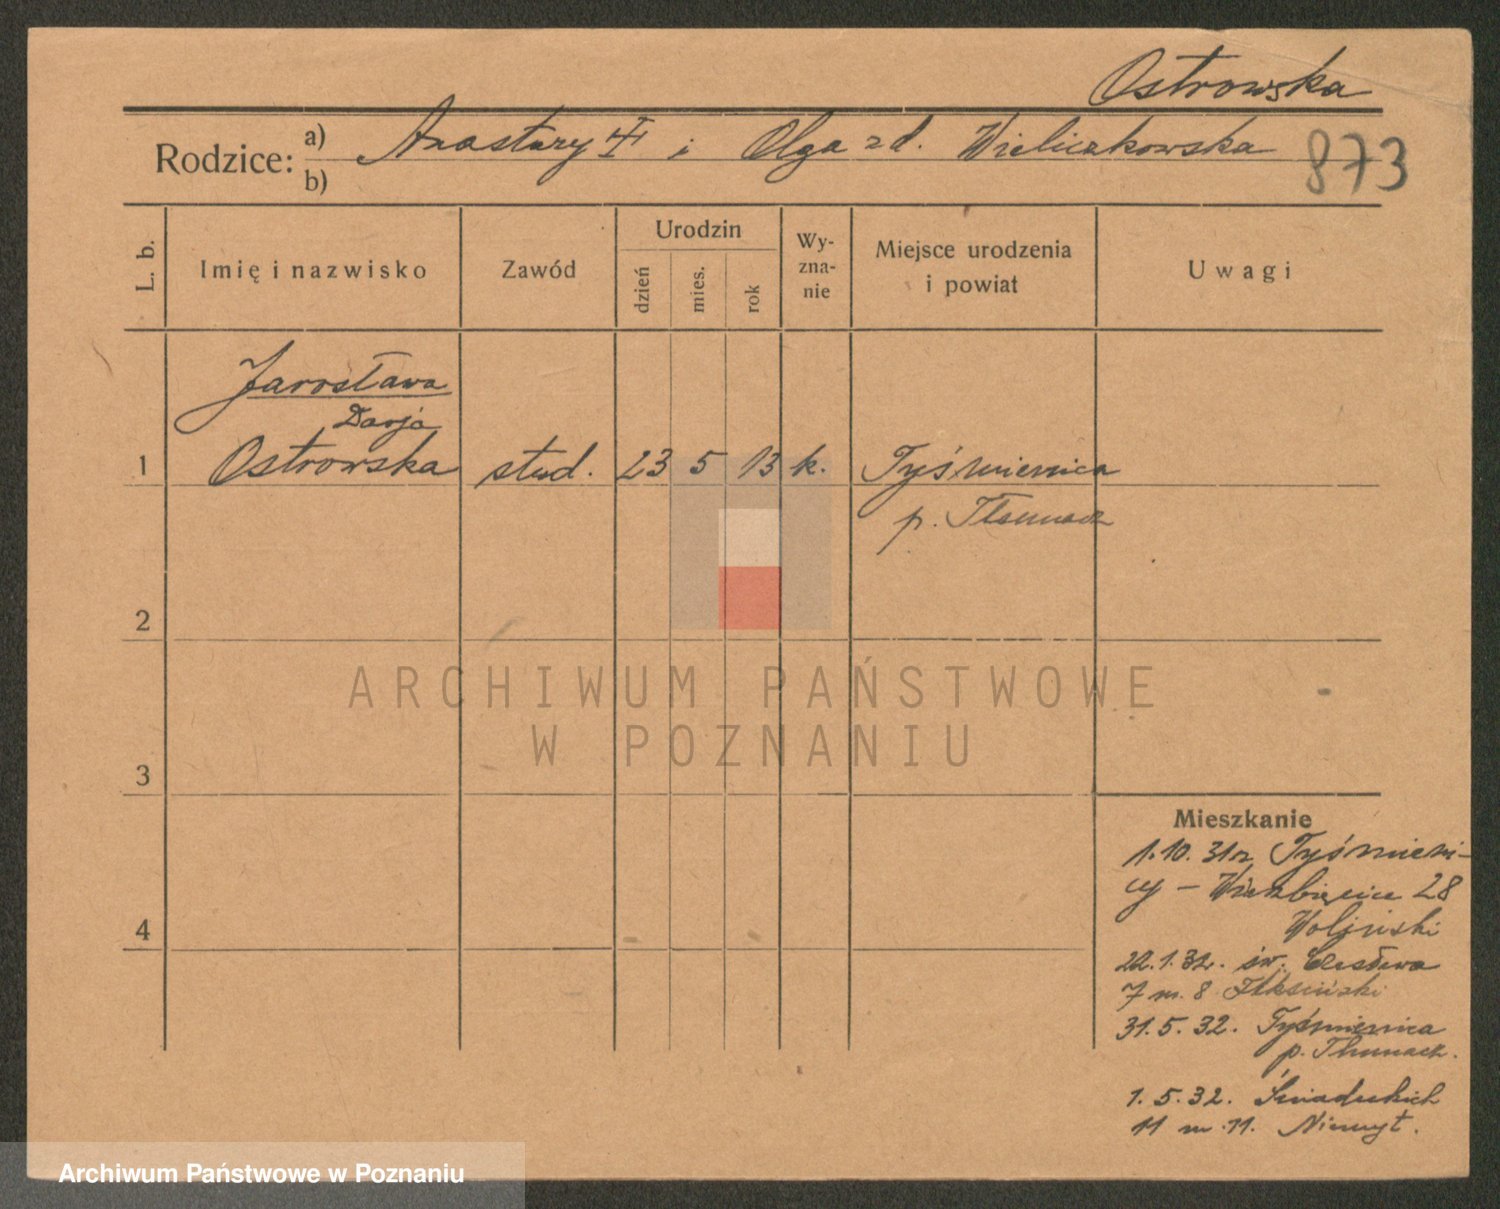 Ostrowska
Rodzice: a) b) Anastazy i Olga z d. Wieliczkowska
873
L. b. Imię i nazwisko Zawód Urodzin dzień mies. rok Wy-zna-nie Miejsce urodzenia i powiat Uwagi
Jarosława
Darja
1 Ostrowska stud. 23 5 13 k. Tyśmienica
p. Tłumacz
2
3
4
ARCHIWUM PAŃSTWOWE
W POZNANIU
Mieszkanie
1.10.31r. Tyśmieni-
cy – Wierzbięcice 28
Woliński
22.1.32. św. Czesława
7 m. 8
31.5.32. Tyśmienica
p. Tłumacz.
1.5.32. Śniadeckich
11 m. 11. Niemyt.
Archiwum Państwowe w Poznaniu